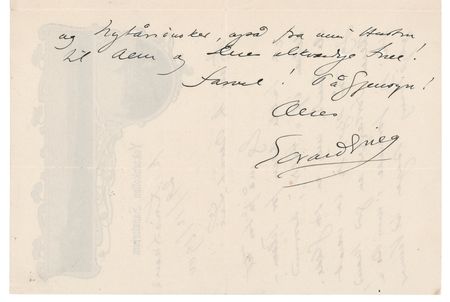 og Nytårsønsker, også fra min Hustru
til Dem og Deres elskværdige Frue!
Farvel! På Gjensyn!
Deres
Edvard Grieg